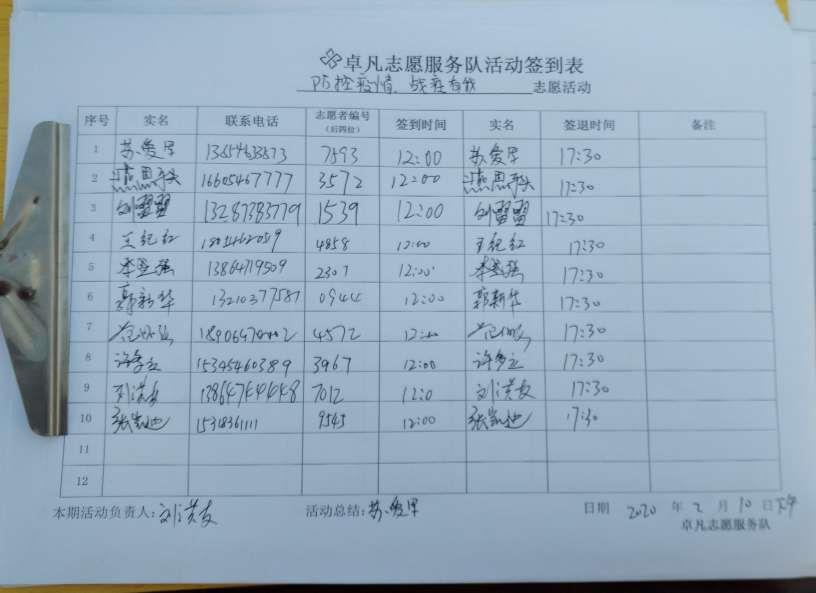 卓凡志愿服务队活动签到表
防控疫情、战疫有我 志愿活动
序号 实名 联系电话 志愿者编号（后四位） 签到时间 实名 签退时间 备注
1 苏爱军 7593 12:00 苏爱军 17:30
2 16605467777 3572 12:00 17:30
3 刘盟盟 13287383779 1539 12:00 刘盟盟 17:30
4 王纪红 4858 12:00 王纪红 17:30
5 13864719509 2307 12:00 17:30
6 郭新华 13210377587 0944 12:00 郭新华 17:30
7 4572 17:30
8 15345460389 3967 12:00 17:30
9 刘洪友 7012 12:0 刘洪友 17:30
10 张凯迪 15318361111 9545 12:00 张凯迪 17:30
11
12
本期活动负责人：刘洪友 活动总结：苏爱军 日期 2020 年 2 月 10 日 下午
卓凡志愿服务队